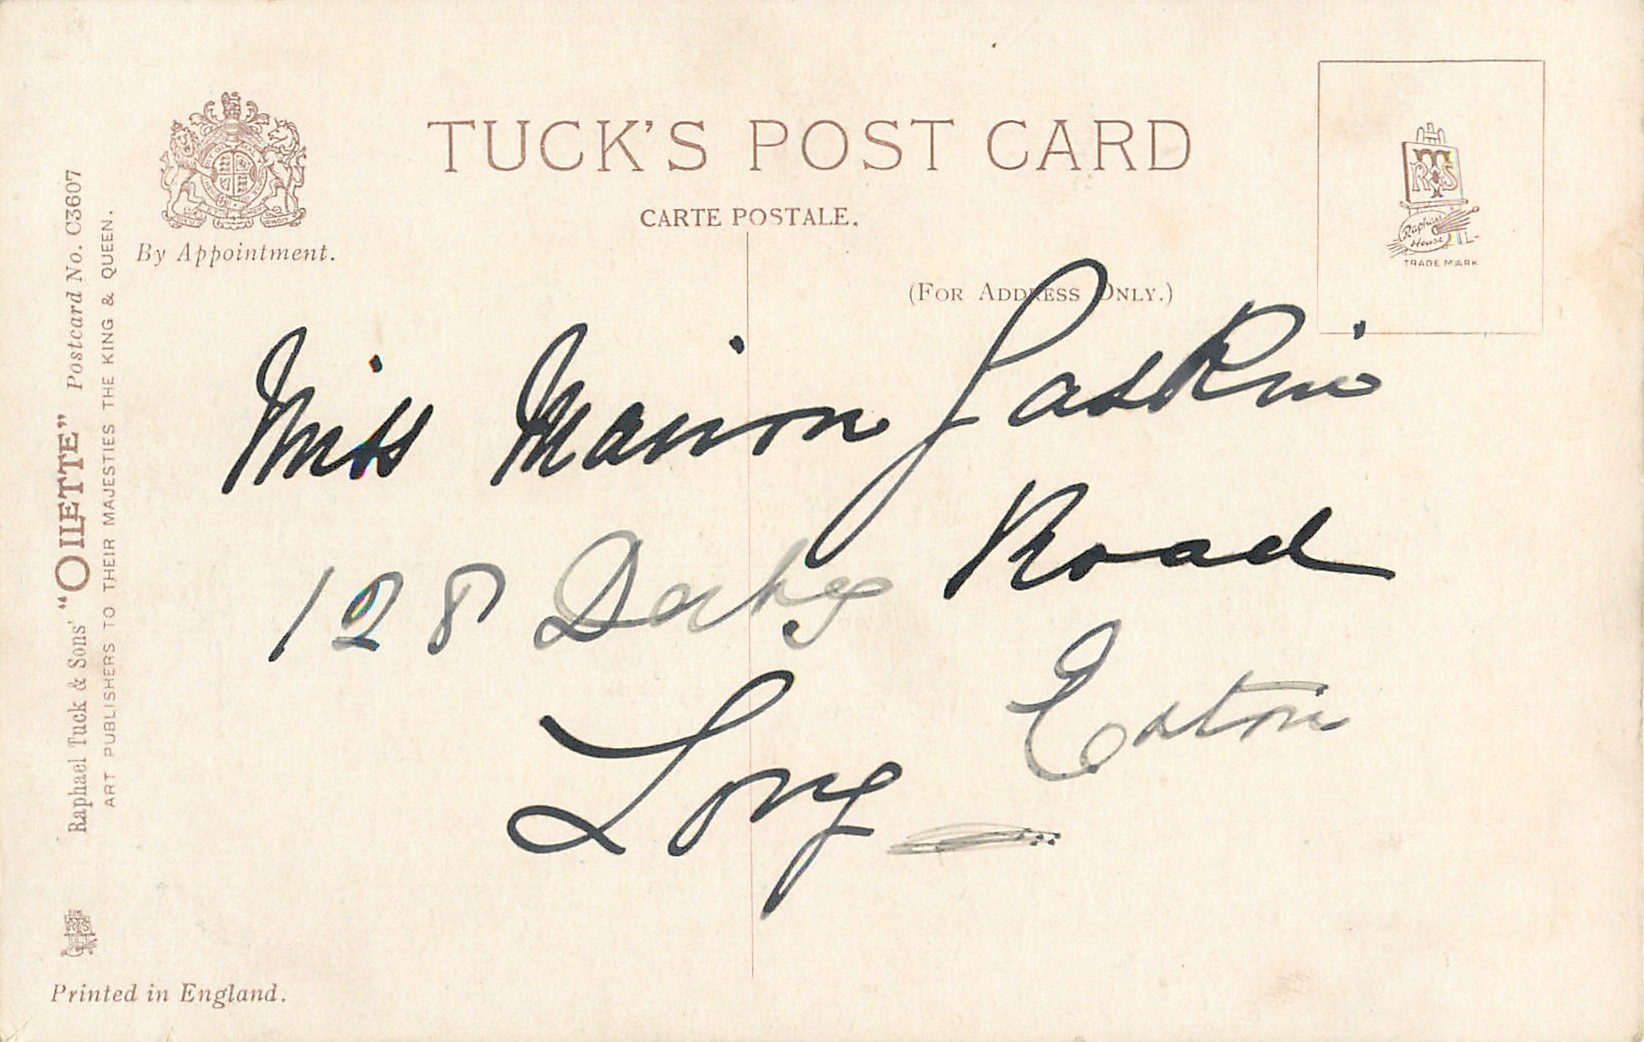 TUCK'S POST CARD
CARTE POSTALE.
By Appointment.
(FOR ADDRESS ONLY.)
RTS
Raphael House
TRADE MARK
Raphael Tuck & Sons' "OILETTE" Postcard No. C3607
ART PUBLISHERS TO THEIR MAJESTIES THE KING & QUEEN.
Miss Marion Gaskin
128 Derby Road
Long Eaton
Printed in England.